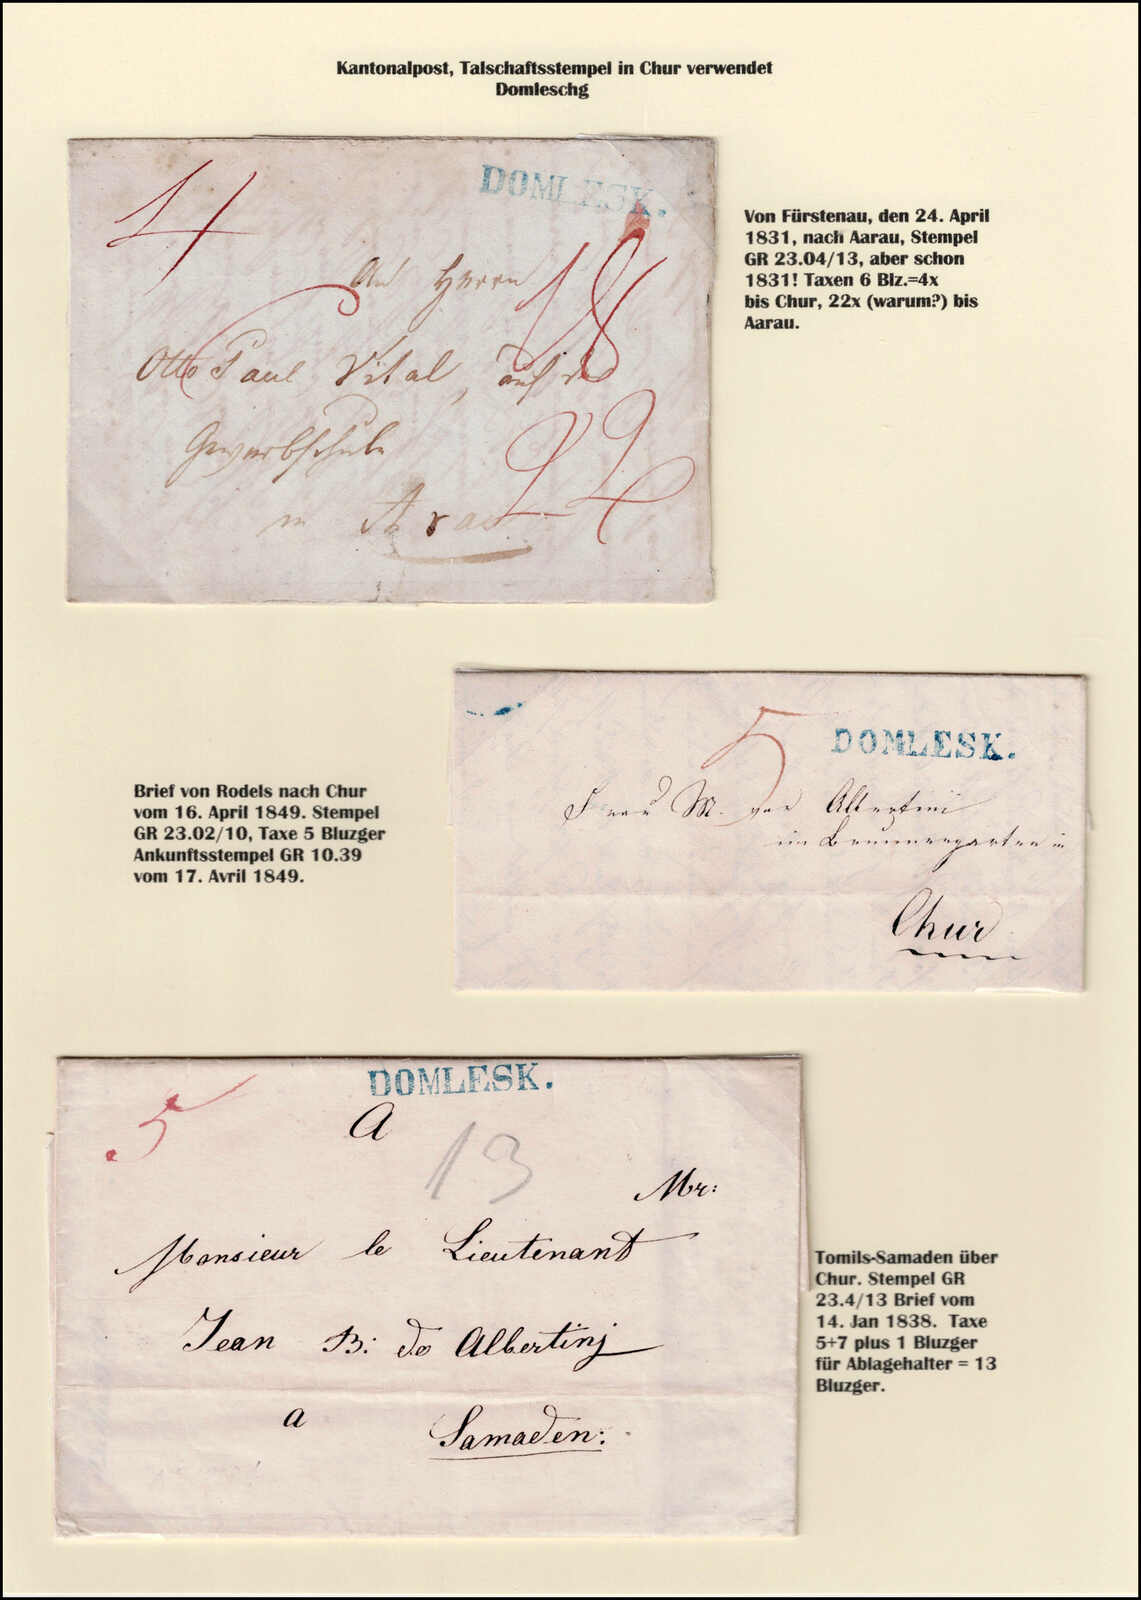 Kantonalpost, Talschaftsstempel in Chur verwendet
Domleschg
DOMLESK.
4
An Herrn
18
Otto Paul Vital, auf der
Gewerbschule
22
in Arau
Von Fürstenau, den 24. April
1831, nach Aarau, Stempel
GR 23.04/13, aber schon
1831! Taxen 6 Blz.=4x
bis Chur, 22x (warum?) bis
Aarau.
5
DOMLESK.
Frau M. von Albertini
im Brunnengarten in
Chur
Brief von Rodels nach Chur
vom 16. April 1849. Stempel
GR 23.02/10, Taxe 5 Bluzger
Ankunftsstempel GR 10.39
vom 17. Avril 1849.
DOMLESK.
5
A
13
Mr:
Monsieur le Lieutenant
Jean B: de Albertinj
a Samaden:
Tomils-Samaden über
Chur. Stempel GR
23.4/13 Brief vom
14. Jan 1838. Taxe
5+7 plus 1 Bluzger
für Ablagehalter = 13
Bluzger.